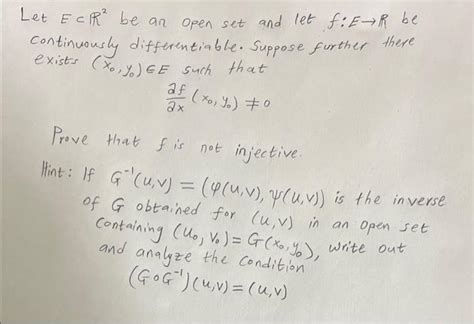 Let E⊂ℝ² be an open set and let f:E→ℝ be
continuously differentiable. Suppose further there
exists (x₀,y₀)∈E such that
∂f/∂x (x₀,y₀) ≠ 0
Prove that f is not injective.
Hint: If G⁻¹(u,v) = (φ(u,v), ψ(u,v)) is the inverse
of G obtained for (u,v) in an open set
containing (u₀,v₀) = G(x₀,y₀), write out
and analyze the condition
(G∘G⁻¹)(u,v) = (u,v)